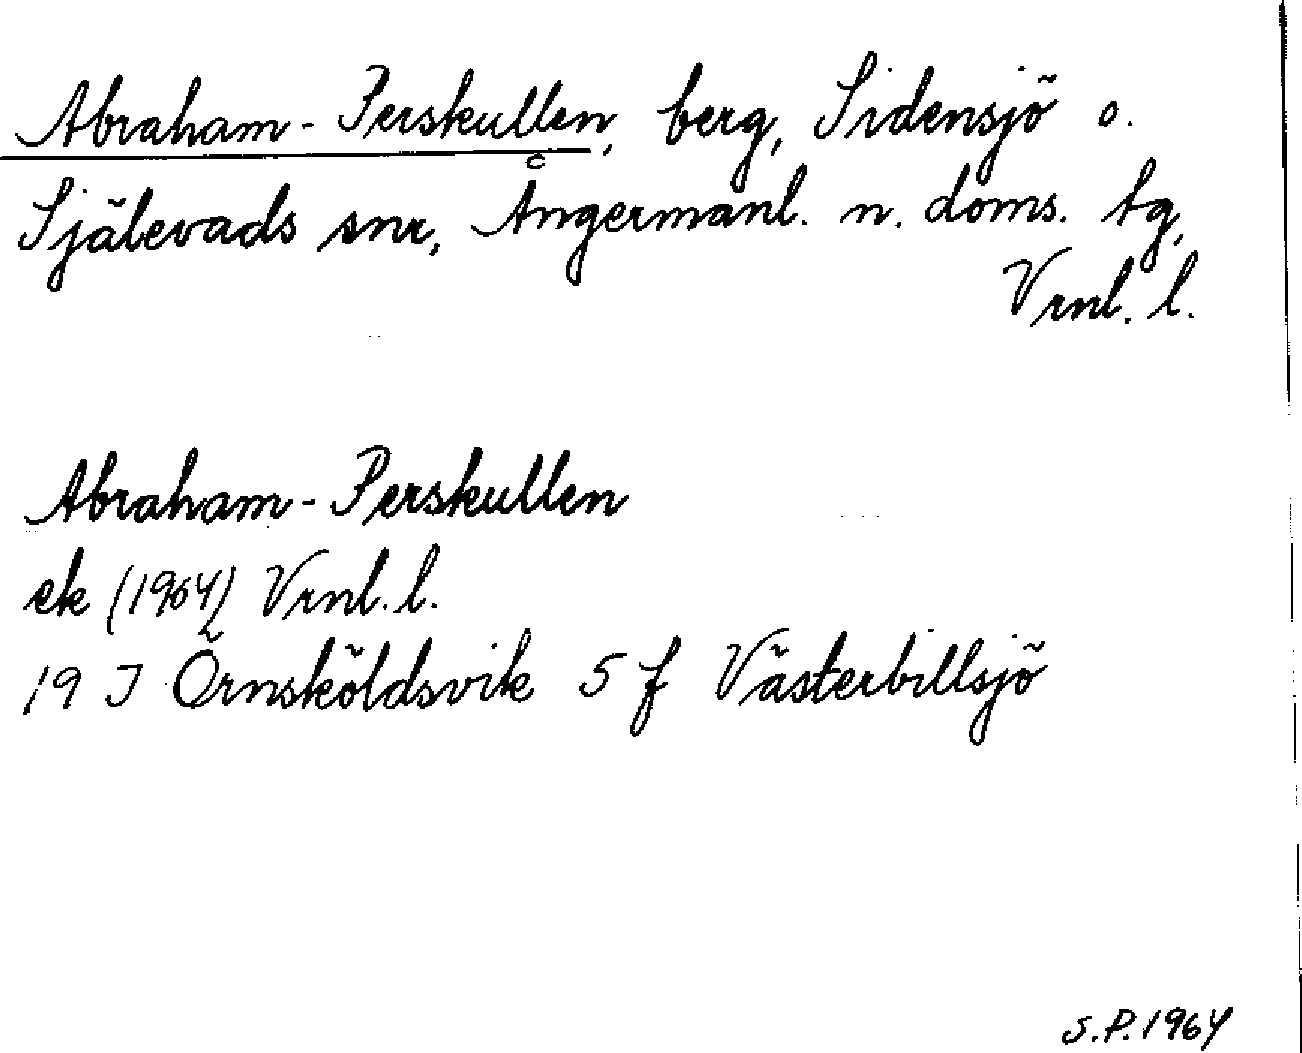 Abraham-Perskullen, berg, Sidensjö o.
Själevads snr, Ångermanl. n. doms. tg,
Vrnl. l.
Abraham-Perskullen
ek (1964) Vrnl. l.
19 J Örnsköldsvik 5 f Västerbillsjö
S.P. 1964